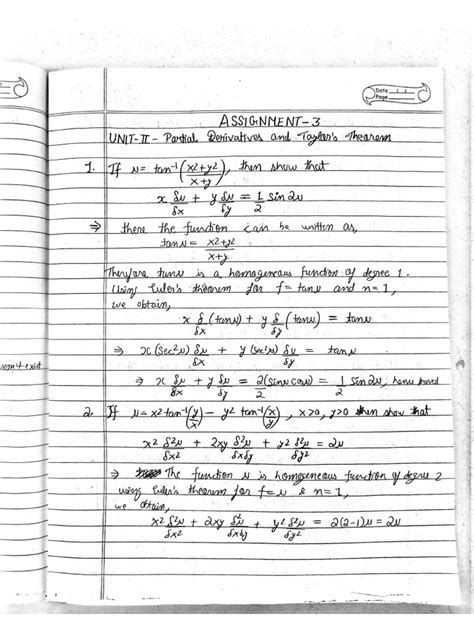 Date / /
Page
ASSIGNMENT-3
UNIT-II- Partial Derivatives and Taylor's Theorem
1. If u = tan⁻¹(x²+y²/x+y), then show that
x δu/δx + y δu/δy = 1/2 sin2u
⇒ there the function can be written as,
tanu = x²+y²/x+y
Therefore tanu is a homogeneous function of degree 1.
Using Euler's theorem for f = tanu and n=1,
we obtain,
x δ/δx (tanu) + y δ/δy (tanu) = tanu
⇒ x(sec²u) δu/δx + y (sec²u) δu/δy = tanu
⇒ x δu/δx + y δu/δy = 2/2 (sinu cosu) = 1/2 sin2u, hence proved
2. If u = x² tan⁻¹(y/x) - y² tan⁻¹(x/y), x>0, y>0 then show that
x² δ²u/δx² + 2xy δ²u/δxδy + y² δ²u/δy² = 2u
⇒ The function u is homogeneous function of degree 2
using Euler's theorem for f=u & n=1,
we obtain,
x² δ²u/δx² + 2xy δ²u/δxδy + y² δ²u/δy² = 2(2-1)u = 2u